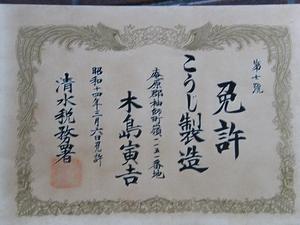 第七號
免許
こうじ製造
庵原郡袖師町嶺一五一番地
木島寅吉
昭和十四年三月六日免許
清水税務署